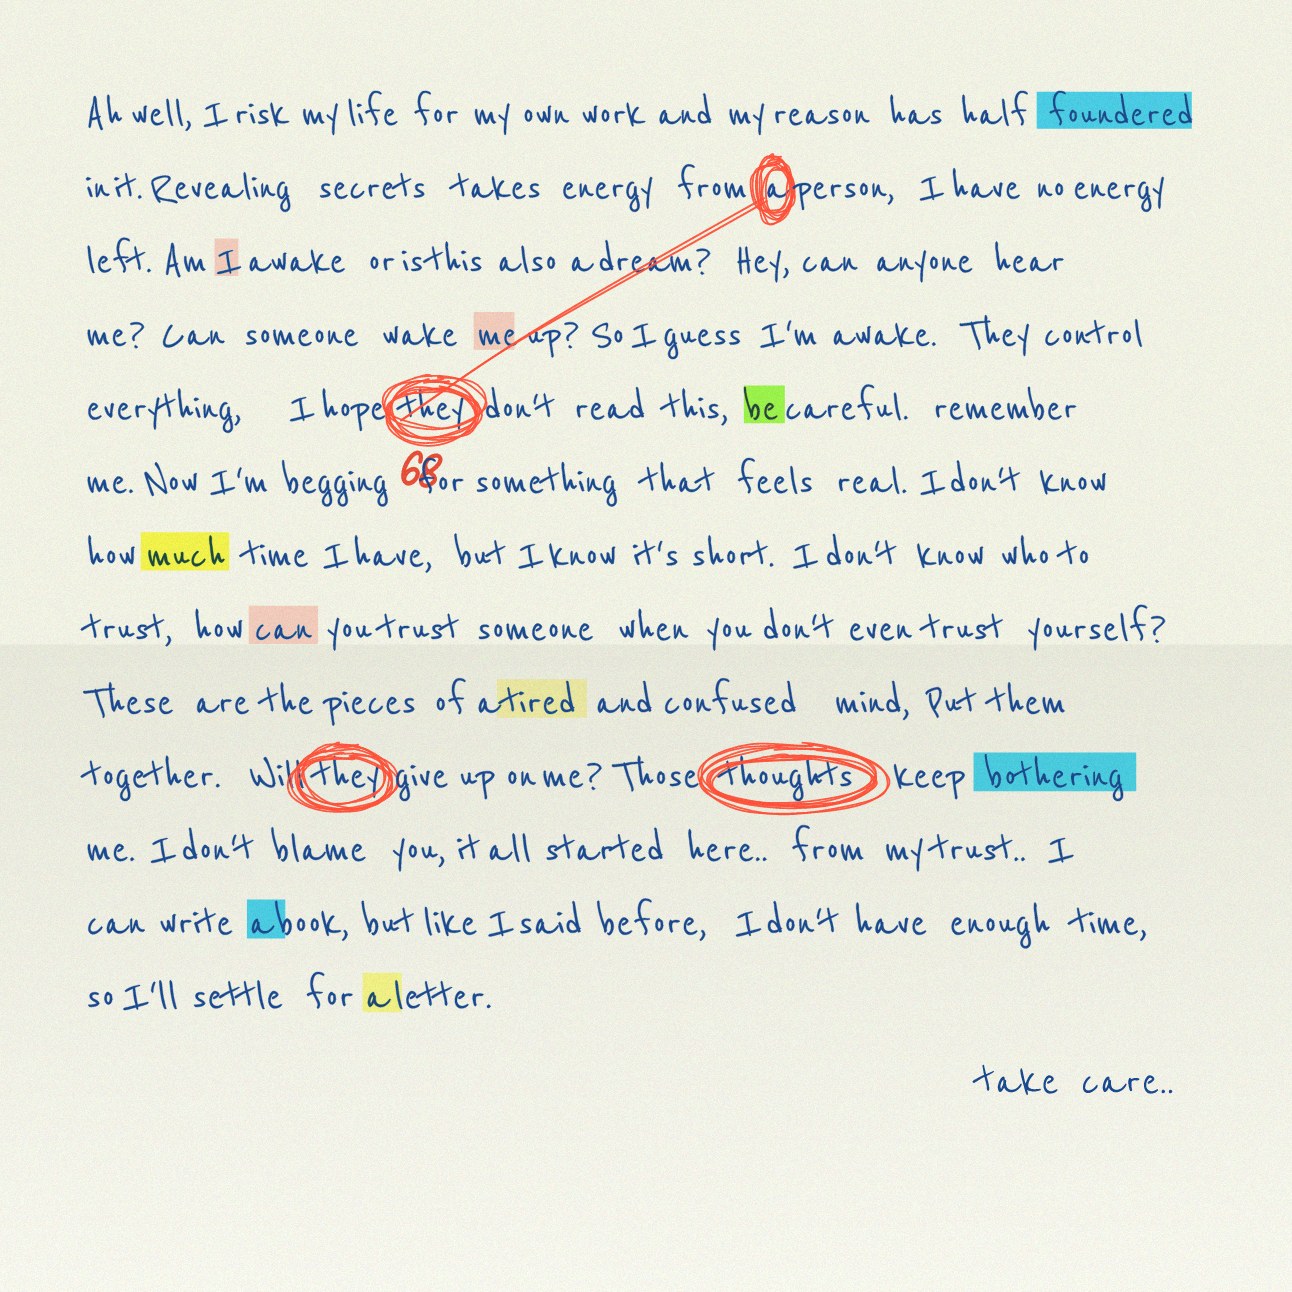 Ah well, I risk my life for my own work and my reason has half foundered
in it. Revealing secrets takes energy from a person, I have no energy
left. Am I awake or is this also a dream? Hey, can anyone hear
me? Can someone wake me up? So I guess I'm awake. They control
everything, I hope they don't read this, be careful. remember
68
me. Now I'm begging for something that feels real. I don't know
how much time I have, but I know it's short. I don't know who to
trust, how can you trust someone when you don't even trust yourself?
These are the pieces of a tired and confused mind, Put them
together. Will they give up on me? Those thoughts keep bothering
me. I don't blame you, it all started here.. from my trust.. I
can write a book, but like I said before, I don't have enough time,
so I'll settle for a letter.
take care..